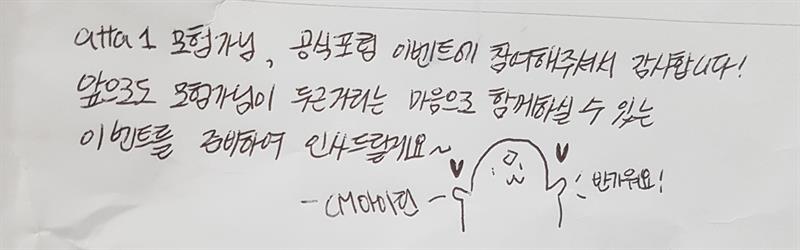 atta1 모험가님, 공식포럼 이벤트에 참여해주셔서 감사합니다!
앞으로도 모험가님이 두근거리는 마음으로 함께하실 수 있는
이벤트를 준비하여 인사드릴게요~
-CM아이린-
반가워요!